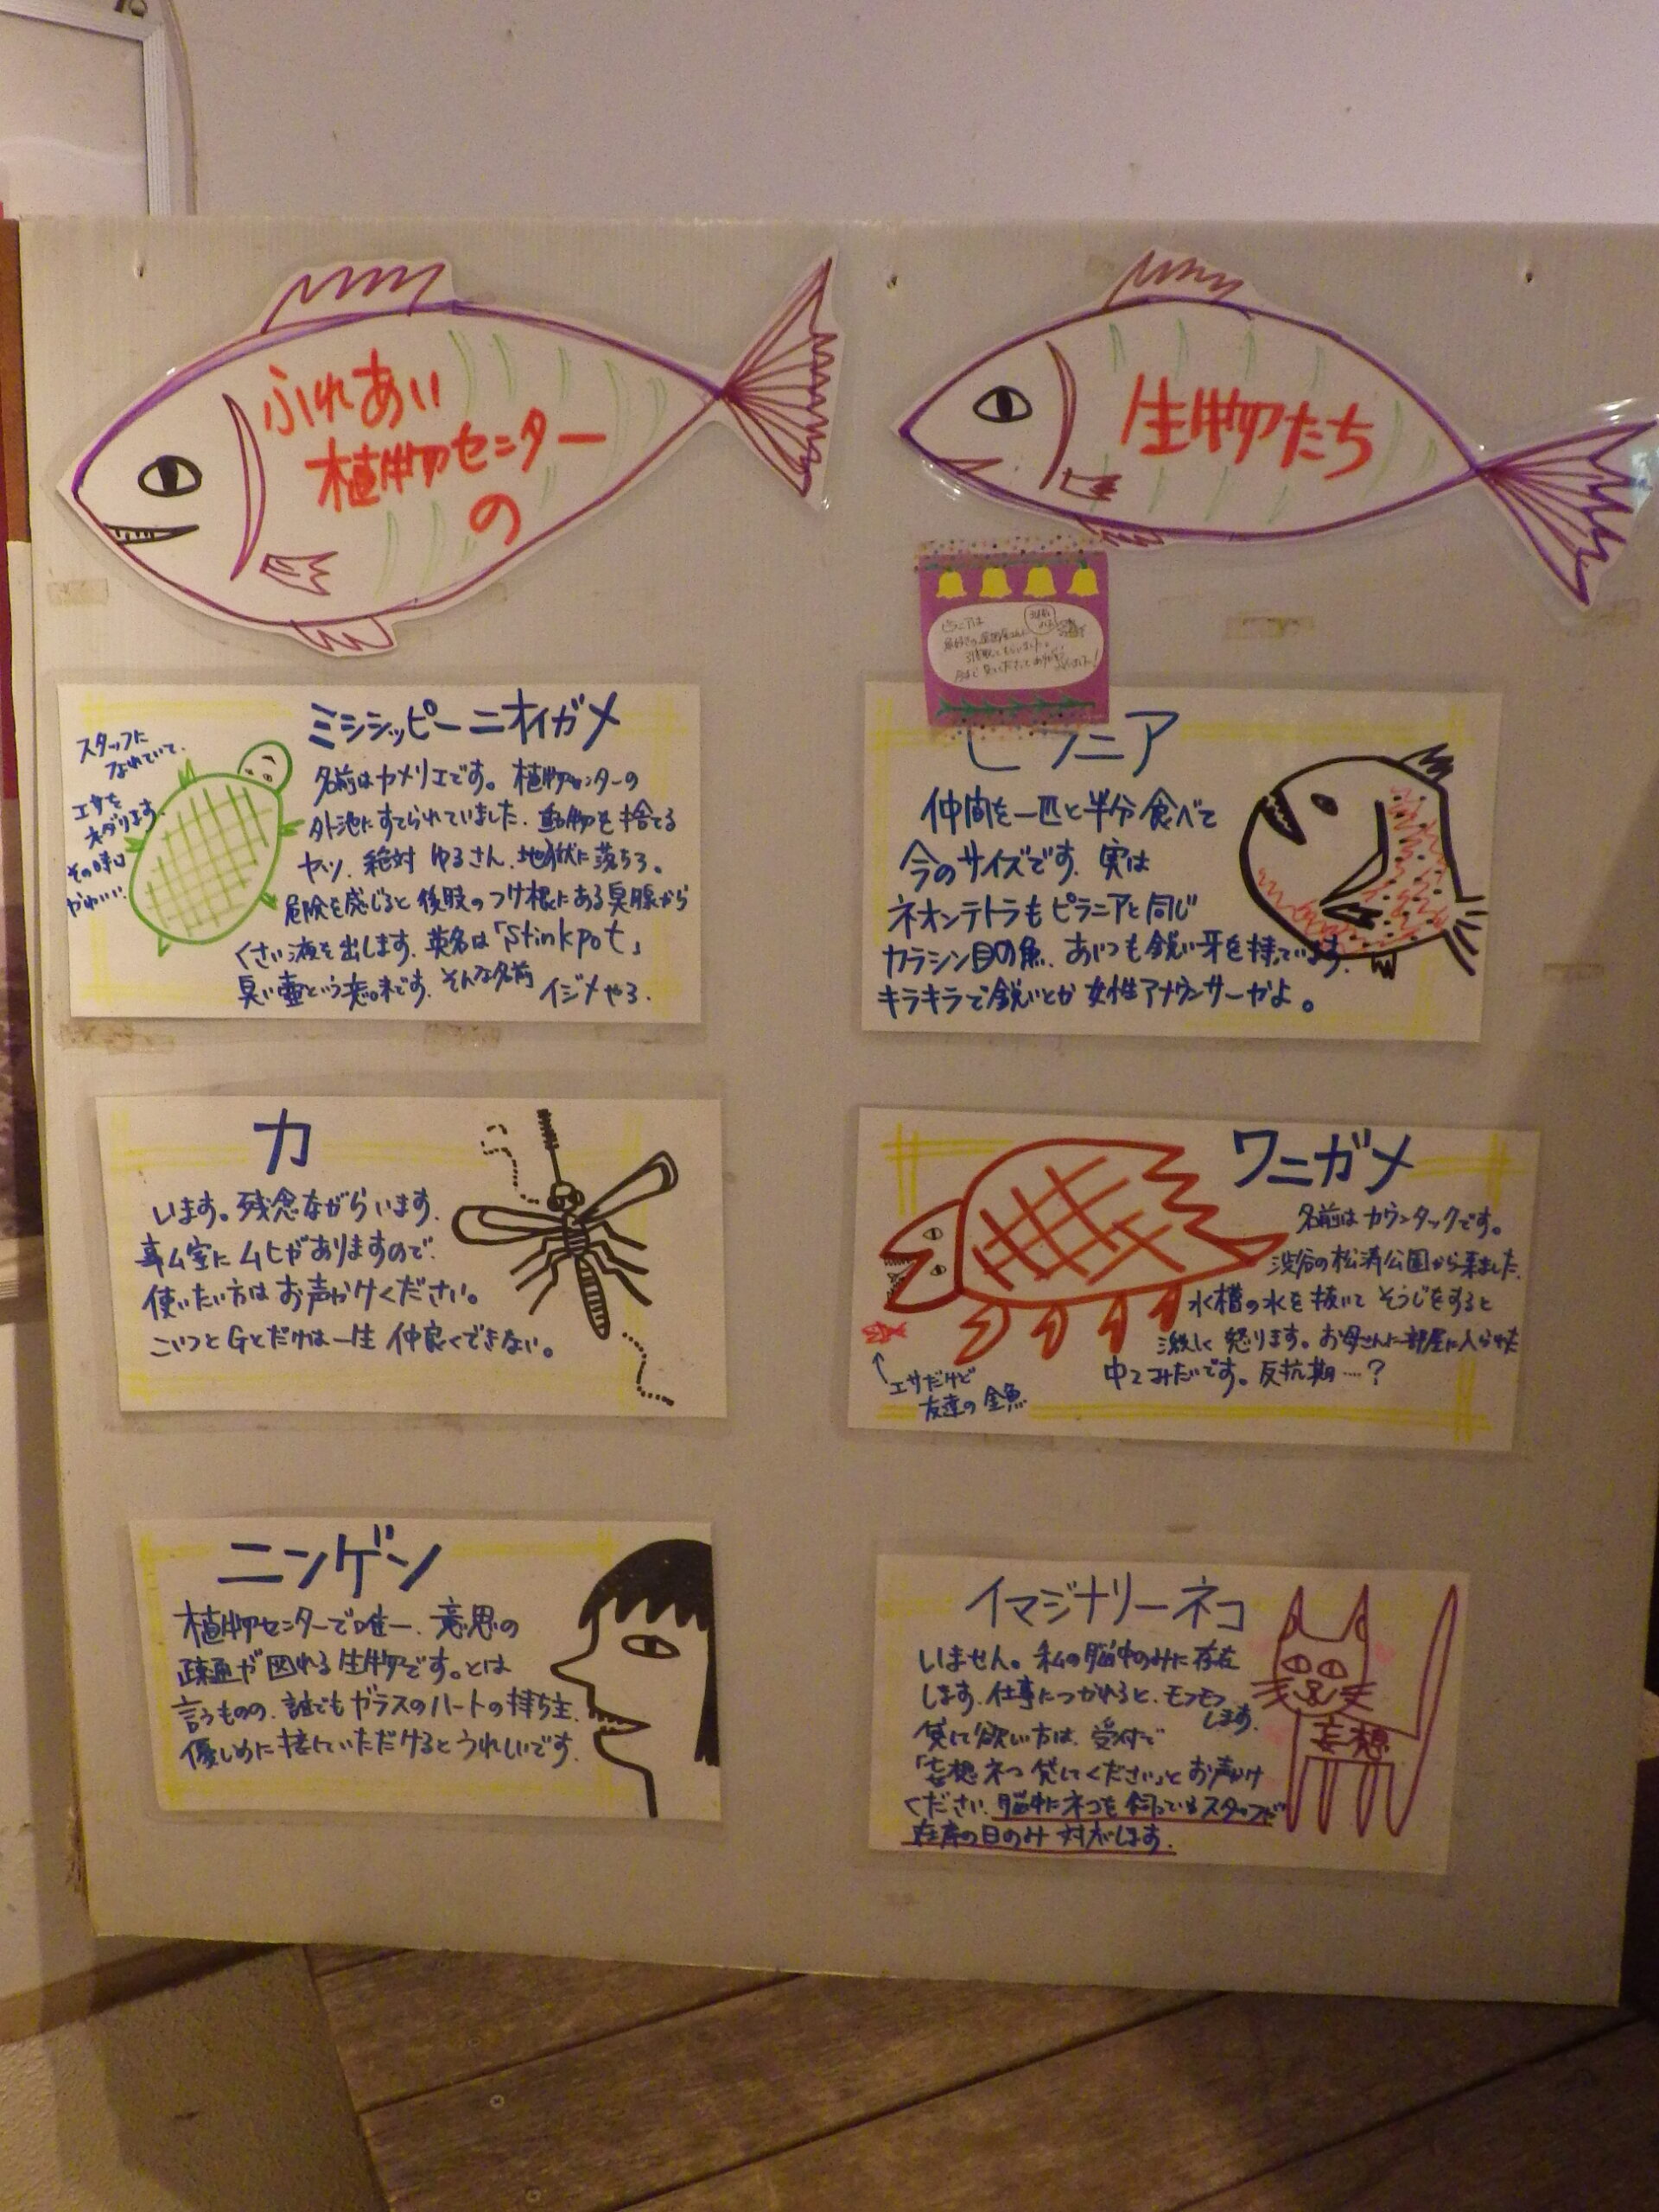 ふれあい
植物センター
の
生物たち
ミシシッピーニオイガメ
スタッフに
なれていて、
エサを
ネダります。
その時は
かわいい。
名前はカメリエです。植物センターの
外池にすてられていました。動物を捨てる
ヤツ、絶対ゆるさん、地獄に落ちろ。
危険を感じると後肢のつけ根にある臭腺から
くさい液を出します。英名は「Stinkpot」
臭い壷という意味です。そんな名前
イジメやろ。
ピラニア
仲間を一匹と半分食べて
今のサイズです。実は
ネオンテトラもピラニアと同じ
カラシン目の魚。あいつも鋭い牙を持っています。
キラキラで鋭いとか女性アナウンサーかよ。
ピラニアは
カ
います。残念ながらいます。
事ム室にムヒがありますので、
使いたい方はお声かけください。
こいつとGとだけは一生仲良くできない。
ワニガメ
名前はカウンタックです。
渋谷の松濤公園から来ました。
水槽の水を抜いてそうじをすると
激しく怒ります。お母さんに部屋に入られた
中2みたいです。反抗期…?
エサだけど
友達の金魚
ニンゲン
植物センターで唯一、意思の
疎通が図れる生物です。とは
言うものの、誰でもガラスのハートの持ち主。
優しめに接していただけるとうれしいです。
イマジナリーネコ
いません。私の脳中のみに存在
します。仕事につかれると、モフモフ
します。
貸して欲しい方は、受付で
「妄想ネコ貸してください」とお声かけ
ください。脳中にネコを飼っているスタッフが
在席の日のみ対応します。
妄想